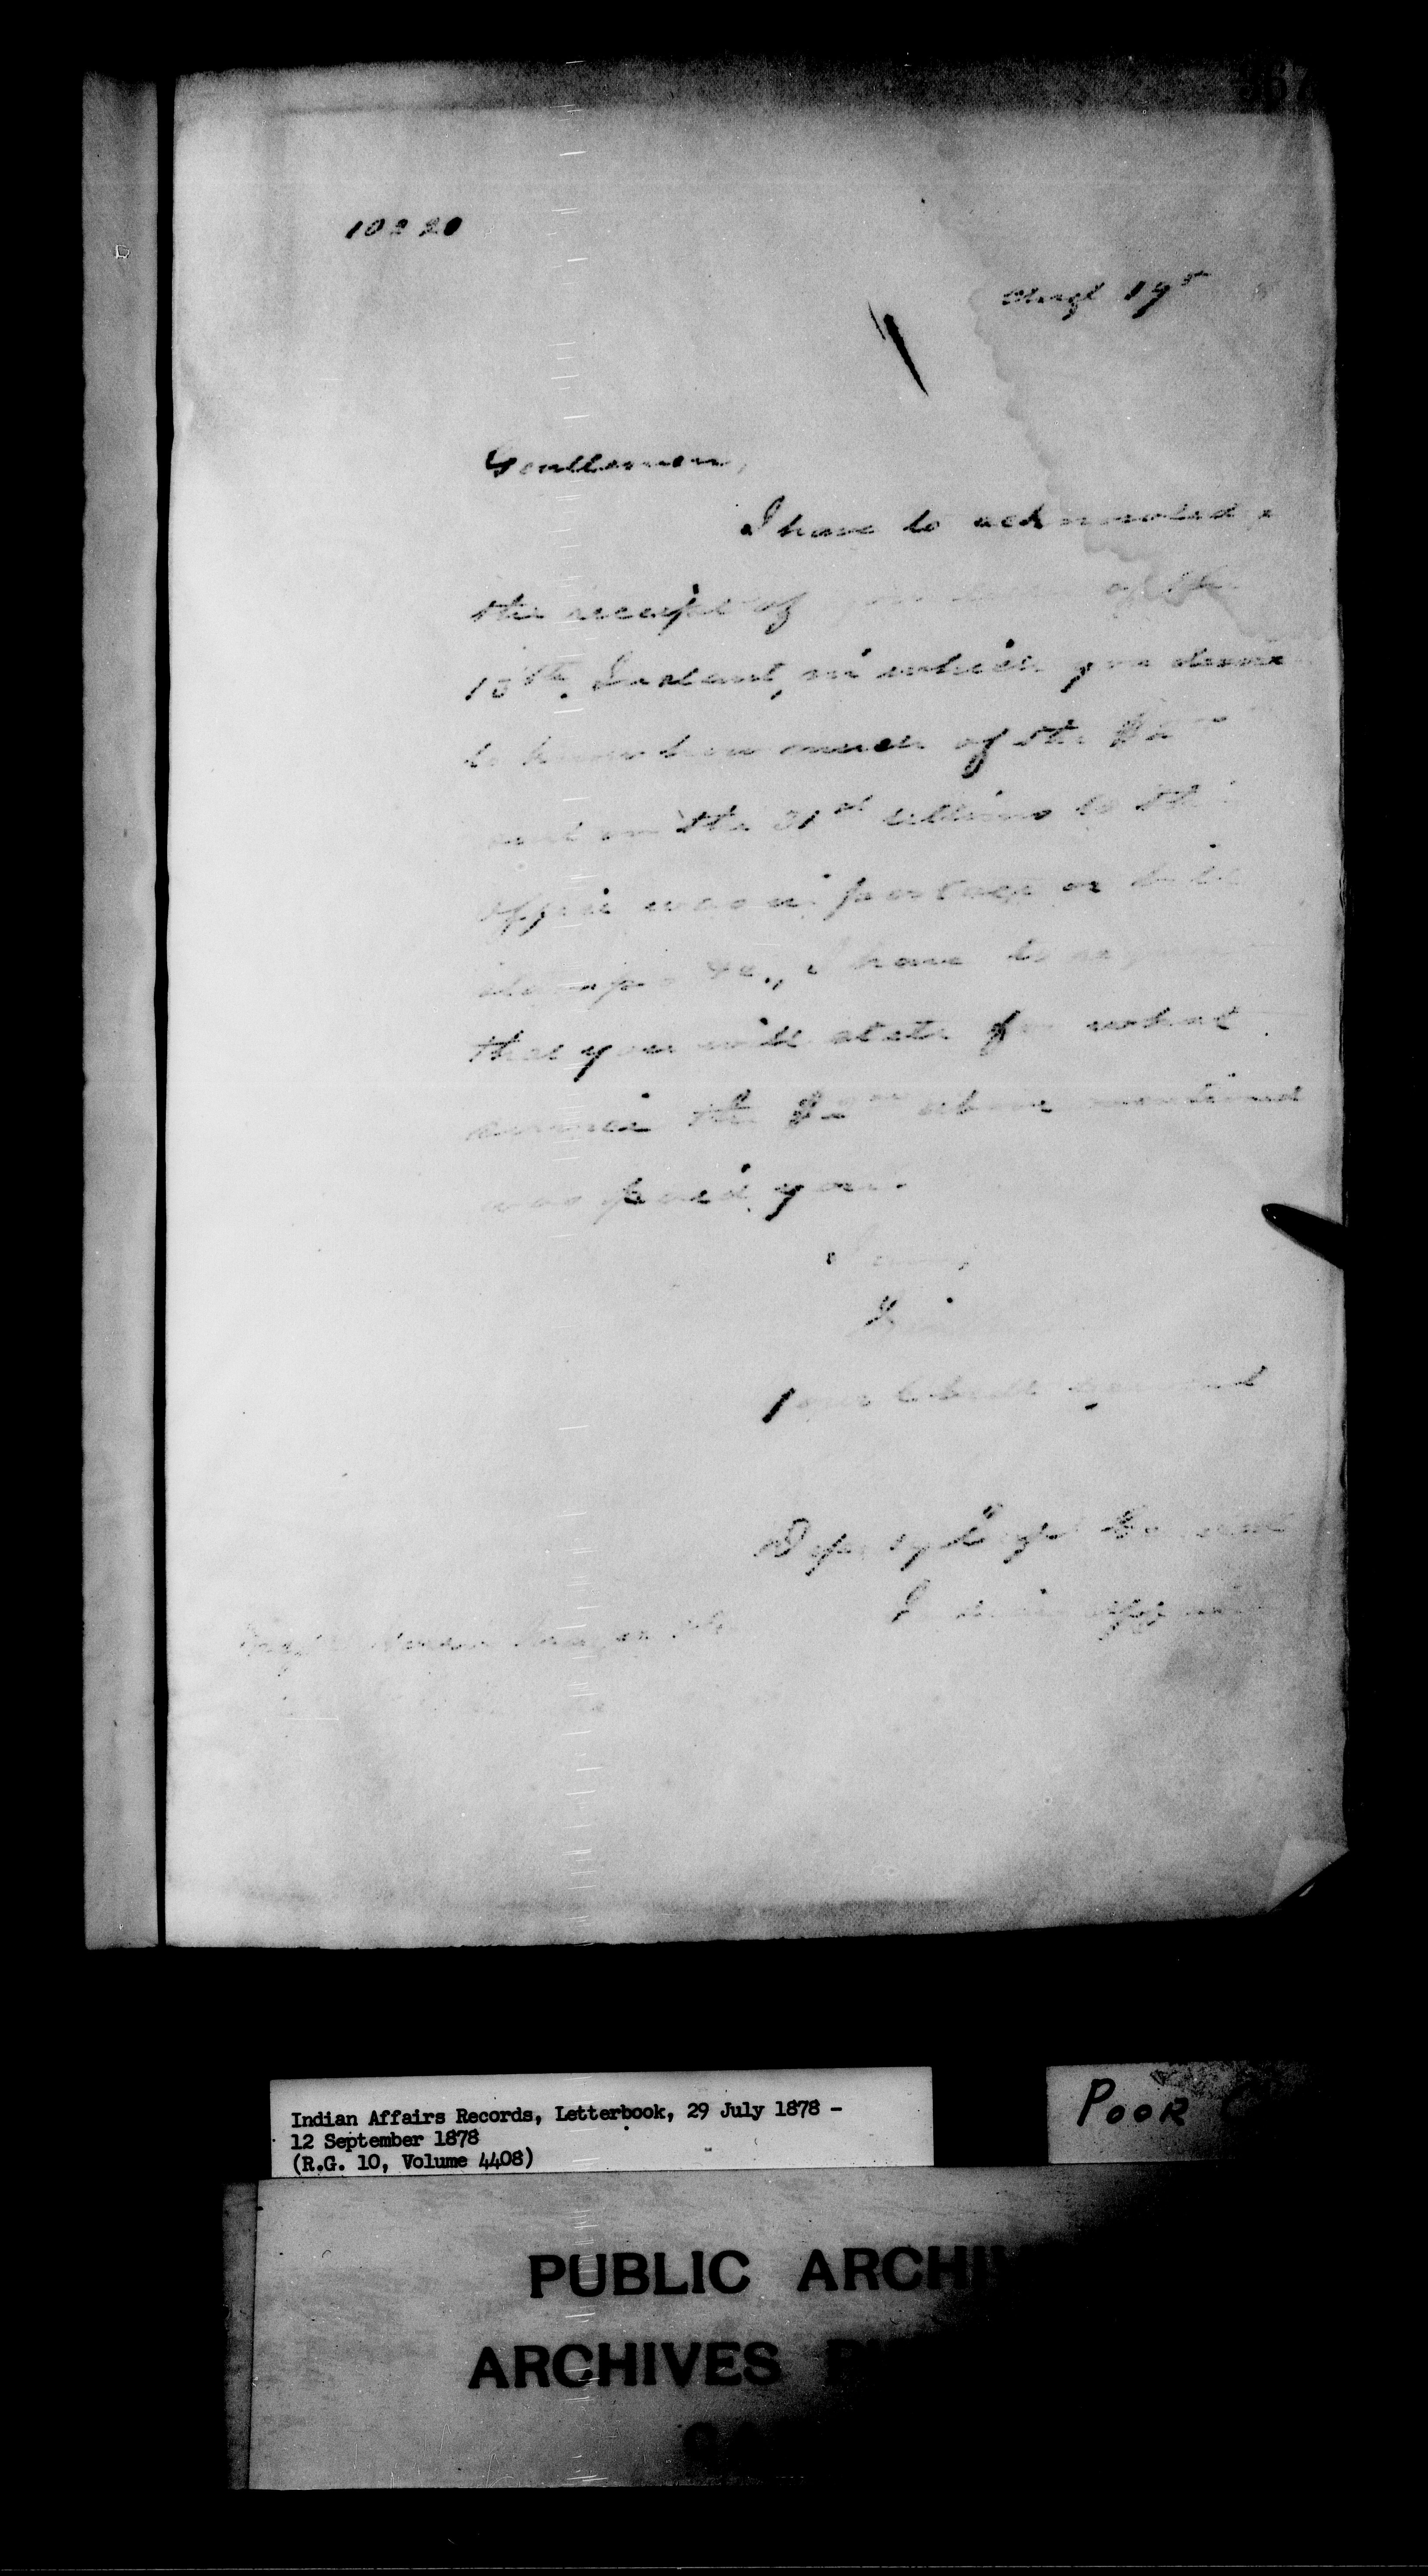 10220
Augt 19
Gentlemen,
I have to acknowledge
the receipt of of the
15th. Instant, in which you desire
to know how much of the $2
sent on the 31st ultimo to this
office was in postage or bill
stamps &c., I have to request
that you will state for what
service the $2 above mentioned
was paid you.
Your Obedt Servant
Deputy Supt General
Indian Affairs
Indian Affairs Records, Letterbook, 29 July 1878 -
12 September 1878
(R.G. 10, Volume 4408)
POOR
PUBLIC ARCHIV
ARCHIVES